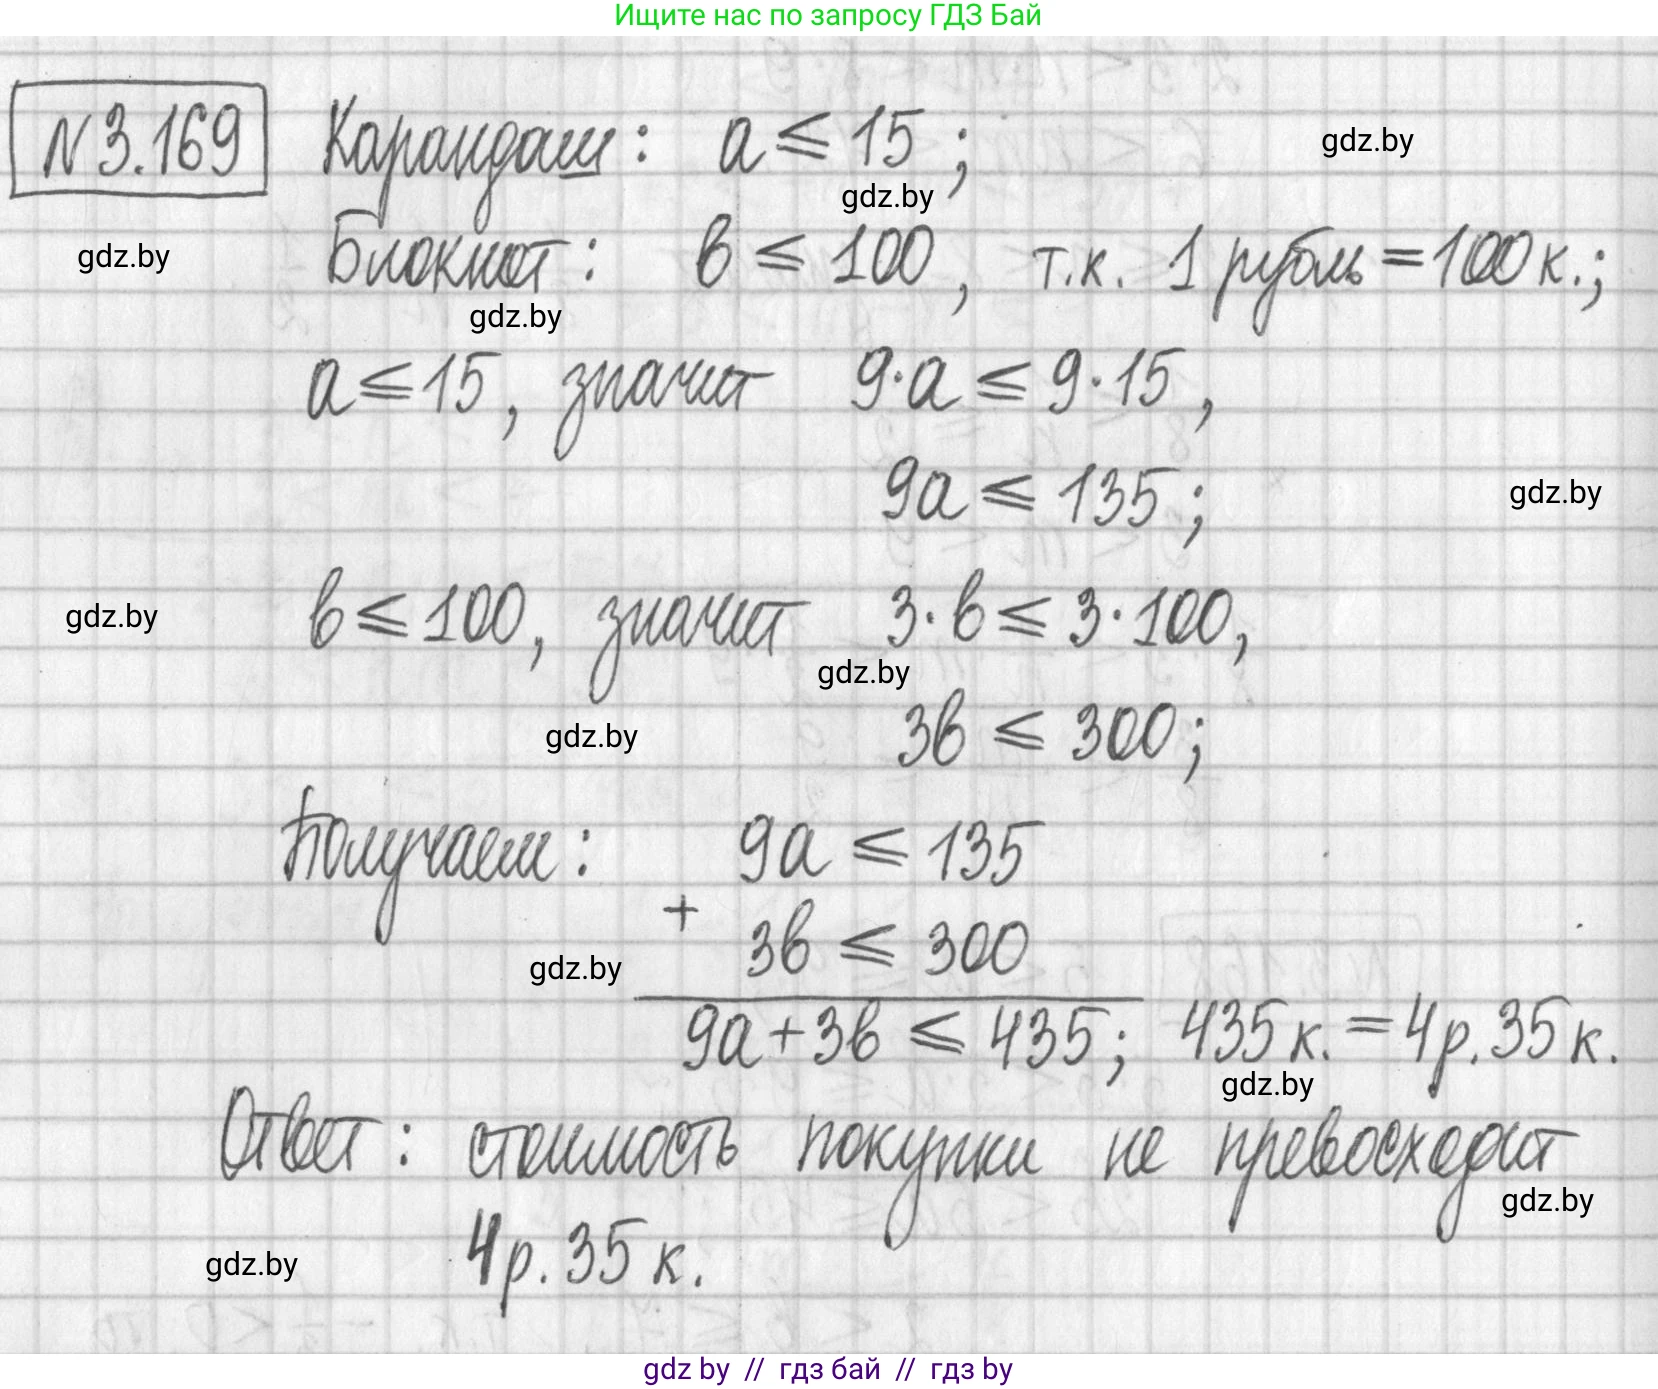 Ищите нас по запросу ГДЗ Бай
N 3.169 Карандаш: a ⩽ 15 ;
gdz.by
gdz.by
Блокнот: в ⩽ 100 , т.к. 1 рубль = 100 к.;
gdz.by
gdz.by
a ⩽ 15, значит 9·a ⩽ 9·15 ,
9a ⩽ 135 ;
gdz.by
в ⩽ 100, значит 3·в ⩽ 3·100,
gdz.by
gdz.by
3в ⩽ 300 ;
gdz.by
Получаем: 9a ⩽ 135
+
3в ⩽ 300
gdz.by
9a + 3в ⩽ 435 ; 435 к. = 4 р. 35 к.
gdz.by
Ответ: стоимость покупки не превосходит
gdz.by
4 р. 35 к.
gdz.by
gdz by // гдз бай // гдз by